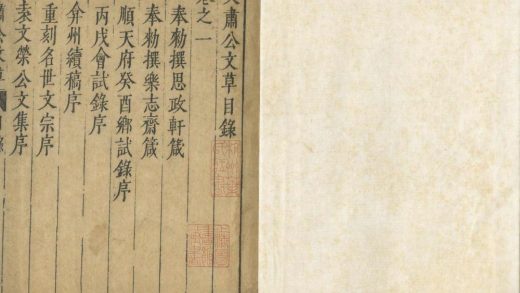 肅公文草目錄
卷之一
奉勑撰思政軒箴
奉勑撰樂志齋箴
順天府癸酉鄉試錄序
丙戌會試錄序
弇州續稿序
重刻名世文宗序
袁文榮公文集序
肅公文草
目錄